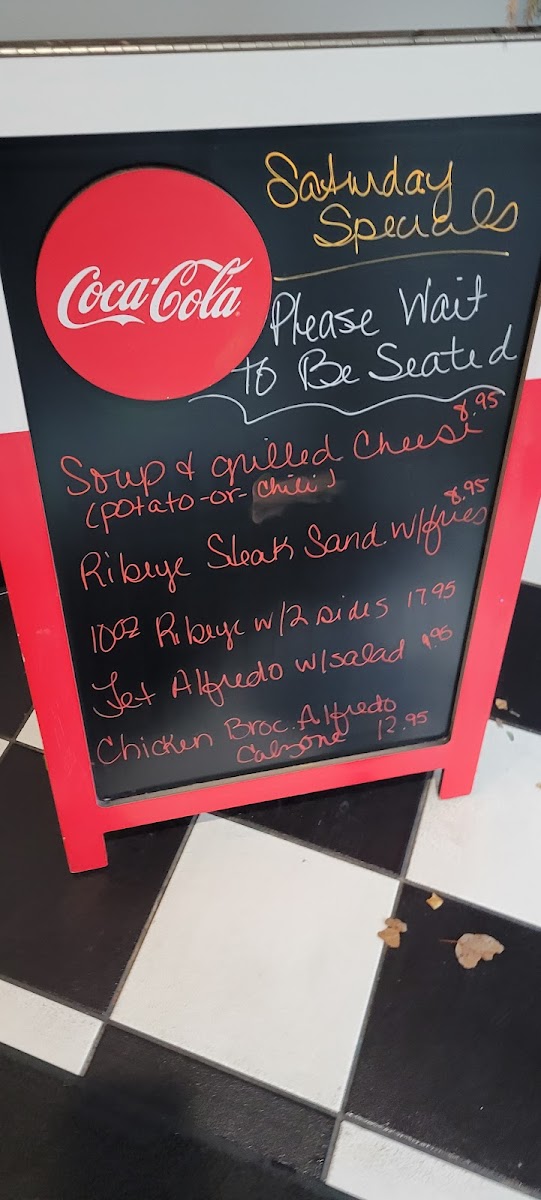 Coca-Cola
Saturday
Specials
Please Wait
to Be Seated
Soup & grilled Cheese 8.95
(potato-or-chili)
Ribeye Steak Sand. w/fries 8.95
10oz Ribeye w/2 sides 17.95
Alfredo w/salad 9.95
Chicken Broc. Alfredo
Calzone 12.95